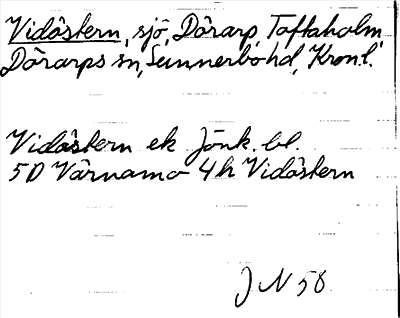 Vidöstern, sjö, Dörarp, Toftaholm
Dörarps sn, Sunnerbo hd, Kron.l.
Vidöstern ek Jönk. bl.
5D Värnamo 4h Vidöstern
J N 58